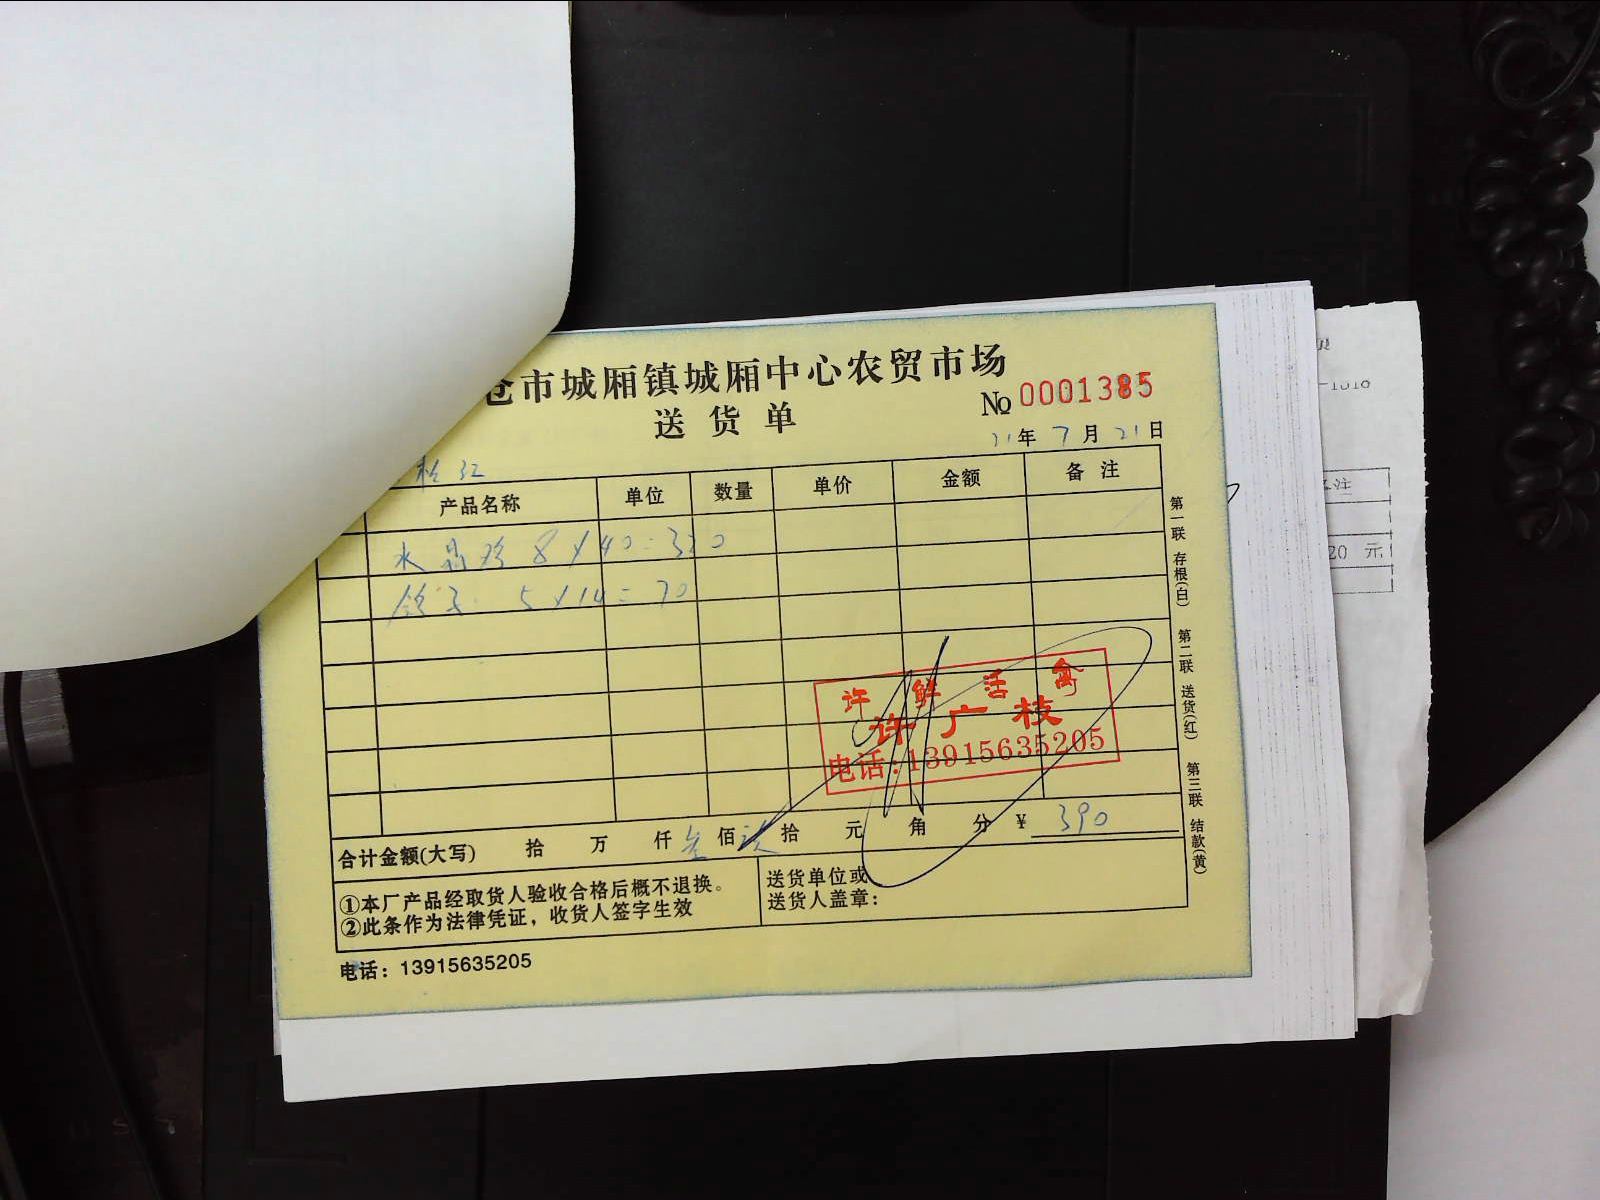 仓市城厢镇城厢中心农贸市场
送货单
No 0001385
21年7月21日
产品名称 单位 数量 单价 金额 备注
水晶鸡 8×40=320
鸽子 5×14=70
许鲜活禽
许广枝
电话:13915635205
合计金额(大写) 拾 万 仟 叁 佰 玖 拾 元 角 分 ¥ 390
①本厂产品经取货人验收合格后概不退换。
②此条作为法律凭证，收货人签字生效
送货单位或
送货人盖章：
电话：13915635205
第一联 存根(白)
第二联 送货(红)
第三联 结款(黄)
20 元